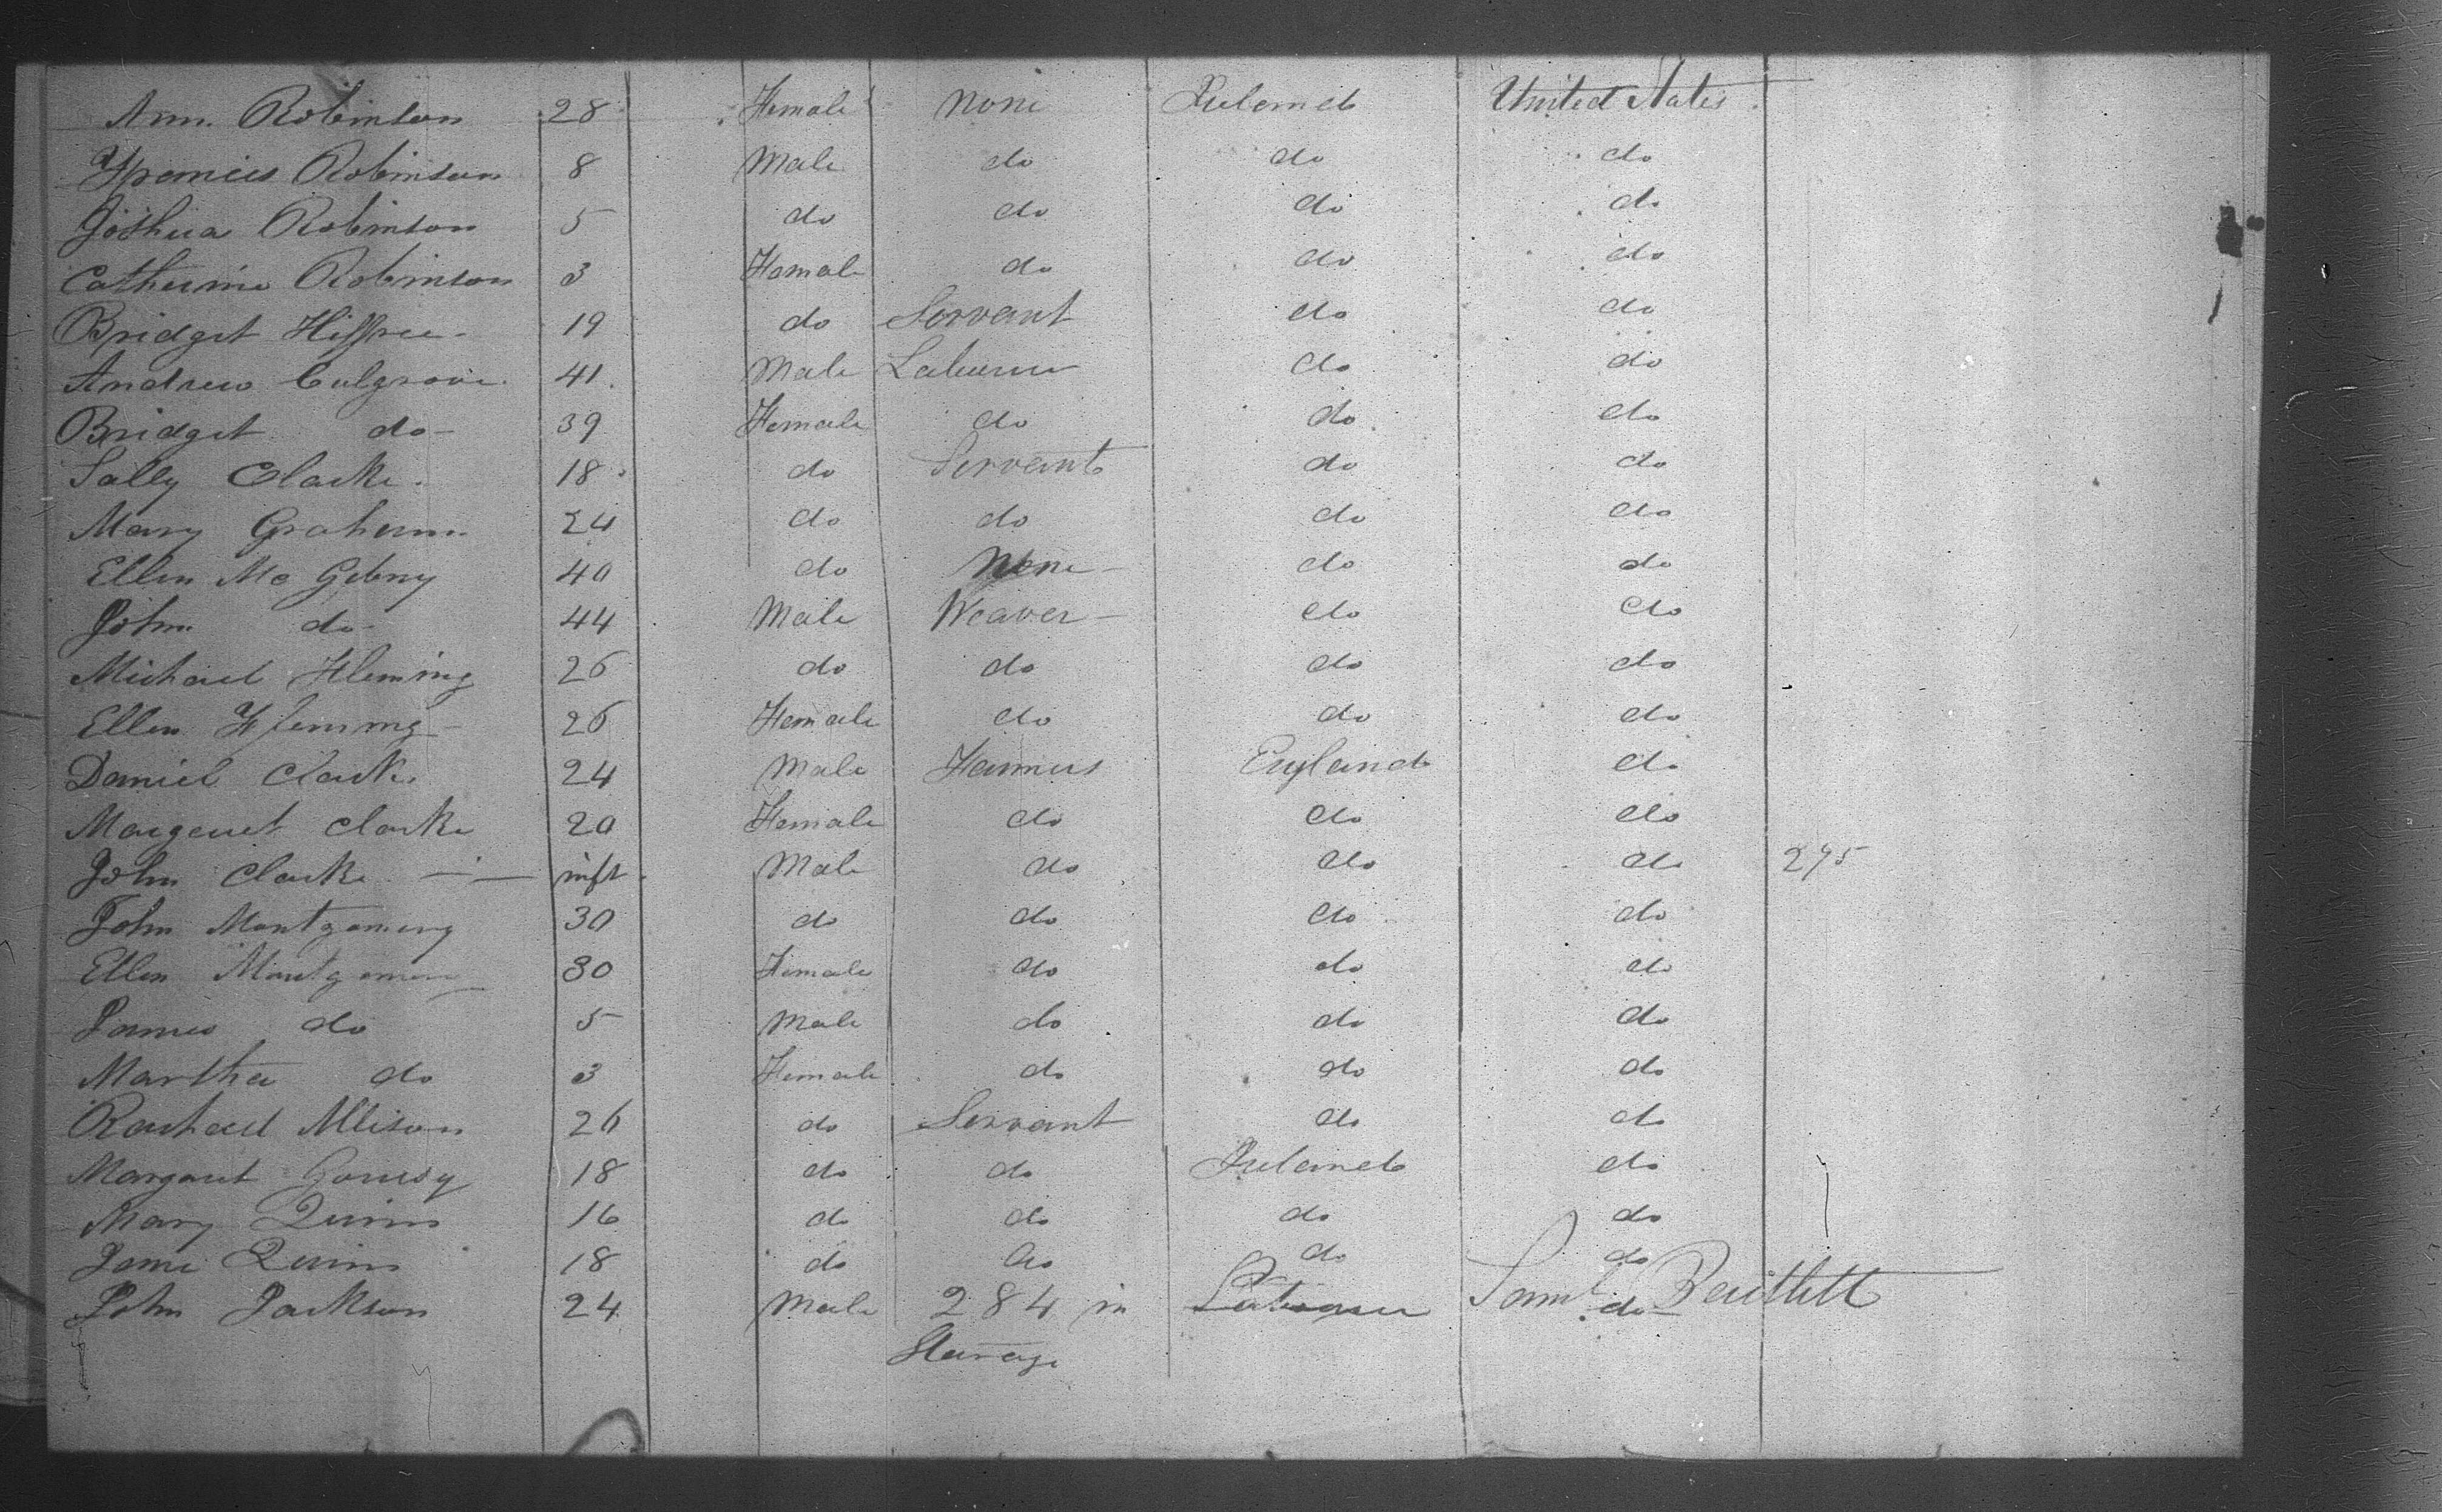 Ann Robinson 28 Female None Ireland United States
Francis Robinson 8 Male do do do
Joshua Robinson 5 do do do do
Catherine Robinson 3 Female do do do
Bridget 19 do Servant do do
Andrew Culgrove 41 Male Laburer do do
Bridget do 39 Female do do do
Sally Clarke 18 do Servant do do
Mary Graham 24 do do do do
Ellen Mc 40 do None do do
John do 44 Male Weaver do do
Michael Fleming 26 do do do do
Ellen Flemming 26 Female do do do
Daniel Clarke 24 Male Farmers England do
Margaret Clarke 20 Female do do do
John Clarke inft Male do do do 295
John Montgomery 30 do do do do
Ellen Montgomery 30 Female do do do
James do 5 Male do do do
Martha do 3 Female do do do
Rachael Allison 26 do Servant do do
Margaret 18 do do Ireland do
Mary Quinn 16 do do do do
Jane Quinn 18 do do do do
John Jackson 24 Male 284 in do Saml Bartlett
Starage